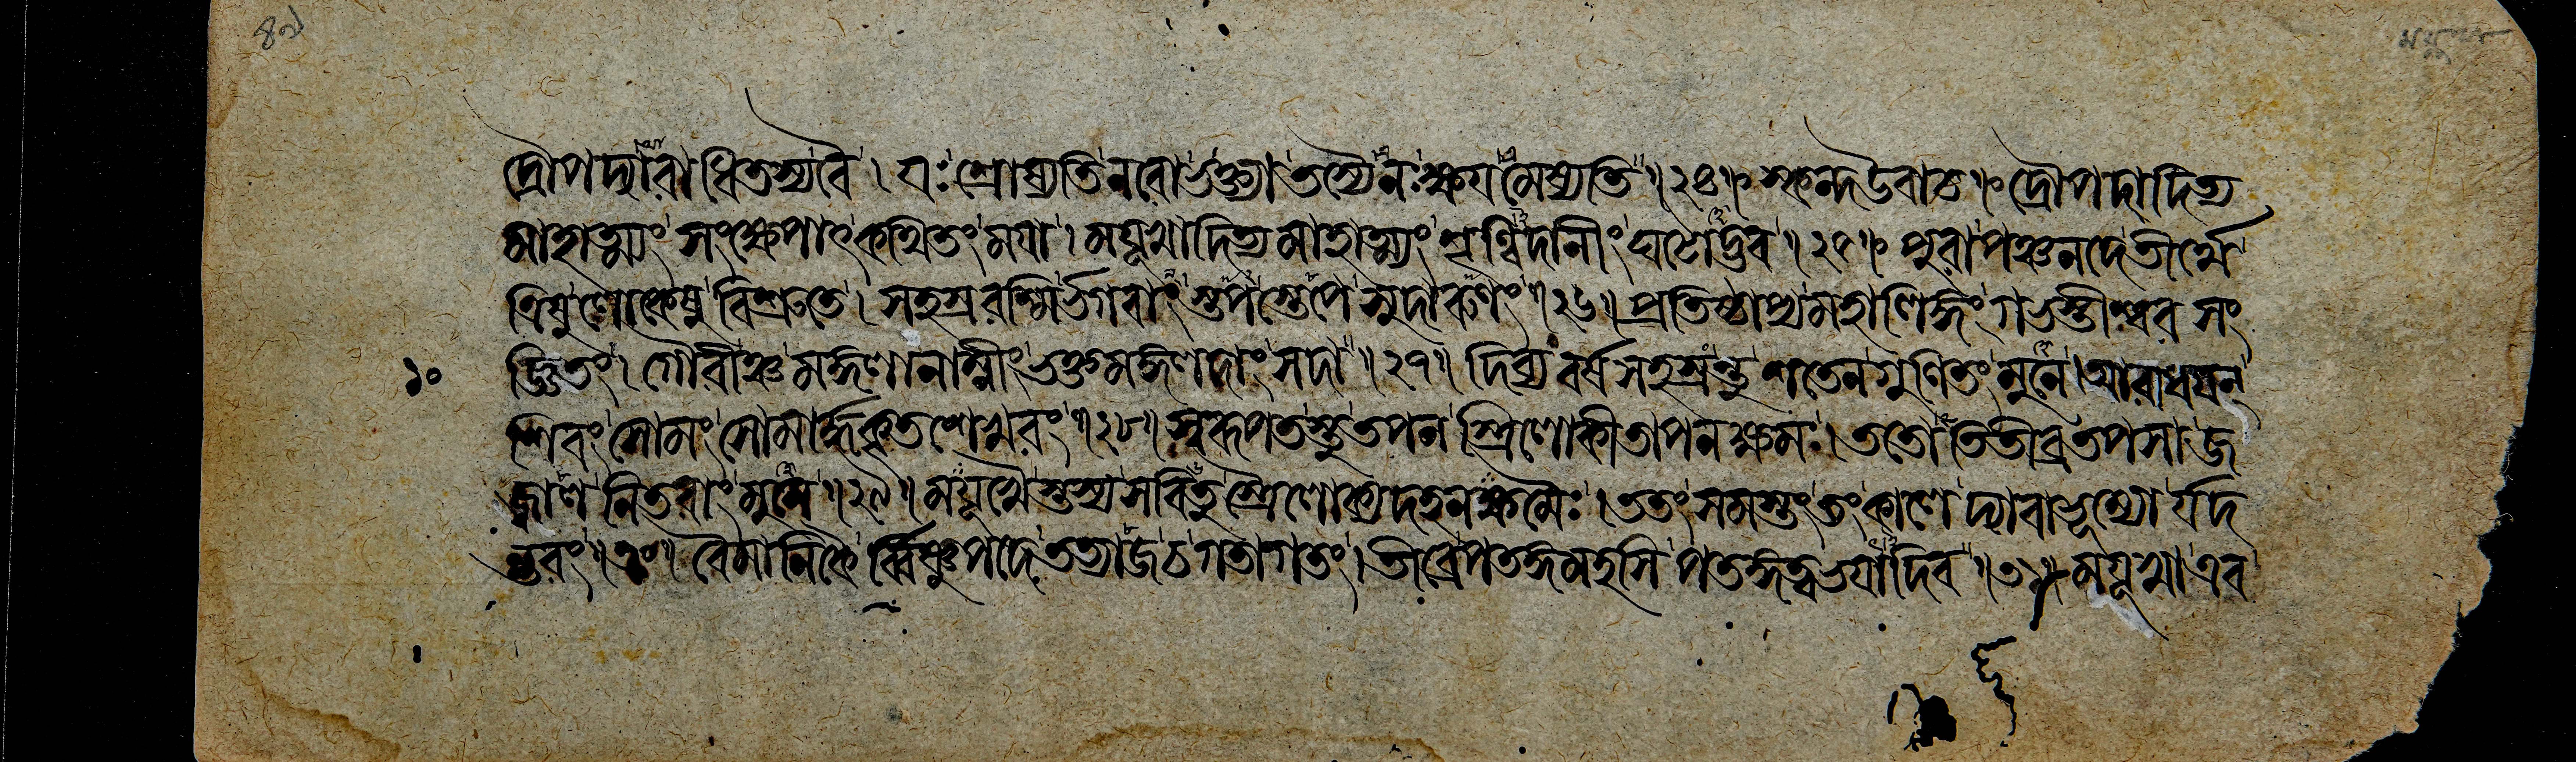 ৪৯
ময়ূখা
দ্রৌপদ্যারাধিতস্য বৈ। যঃ শ্রোষ্যতি নরো ভক্ত্যা তস্যৈনঃ ক্ষয়মেষ্যতি॥২৪॥ স্কন্দ উবাচ॥ দ্রৌপদাদিত্য
মাহাত্ম্যং সংক্ষেপাৎ কথিতং ময়া। ময়ূখাদিত্যমাহাত্ম্যং শৃণ্বিদানীং ঘটোদ্ভব॥২৫॥ পুরা পঞ্চনদে তীর্থে
ত্রিষু লোকেষু বিশ্রুতে। সহস্ররশ্মির্ভগবাংস্তপস্তেপে সুদারুণং॥২৬॥ প্রতিষ্ঠাপ্য মহালিঙ্গং গভস্তীশ্বর সং
১০
জ্ঞিতং। গৌরীঞ্চ মঙ্গলানাম্নীং ভক্তমঙ্গলদাং সদা॥২৭॥ দিব্য বর্ষসহস্রন্তু শতেন গুণিতং মুনে। আরাধয়ন
শিবং সোমং সোমার্দ্ধকৃতশেখরং॥২৮॥ স্বরূপতস্তু তপন স্ত্রিলোকীতাপনক্ষমঃ। ততোতিতীব্রতপসা জ
জ্বাল নিতরাং মুনে॥২৯॥ ময়ূখৈস্তস্য সবিতুস্ত্রৈলোক্যদহনক্ষমৈঃ। ততং সমস্তং তৎকালে দ্যাবাভূম্যোর্যদ
ন্তরং॥৩০॥ বৈমানিকৈর্বিষ্ণুপদে তত্যজে চ গতাগতং। তীব্রে পতঙ্গমহসি পতঙ্গত্বভয়াদিব॥৩১॥ ময়ূখা এব